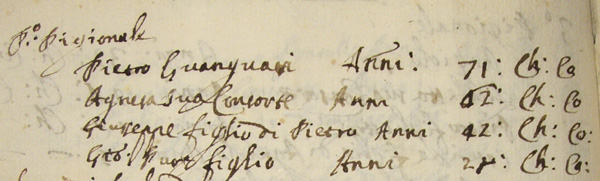 P.º Pigionale
Pietro Guanguari Anni: 71: Ch: Co
Agnesa sua Consorte Anni 42: Ch: Co
Giuseppe figlio di Pietro Anni 42: Ch: Co:
Gio: figlio Anni Ch: Co: